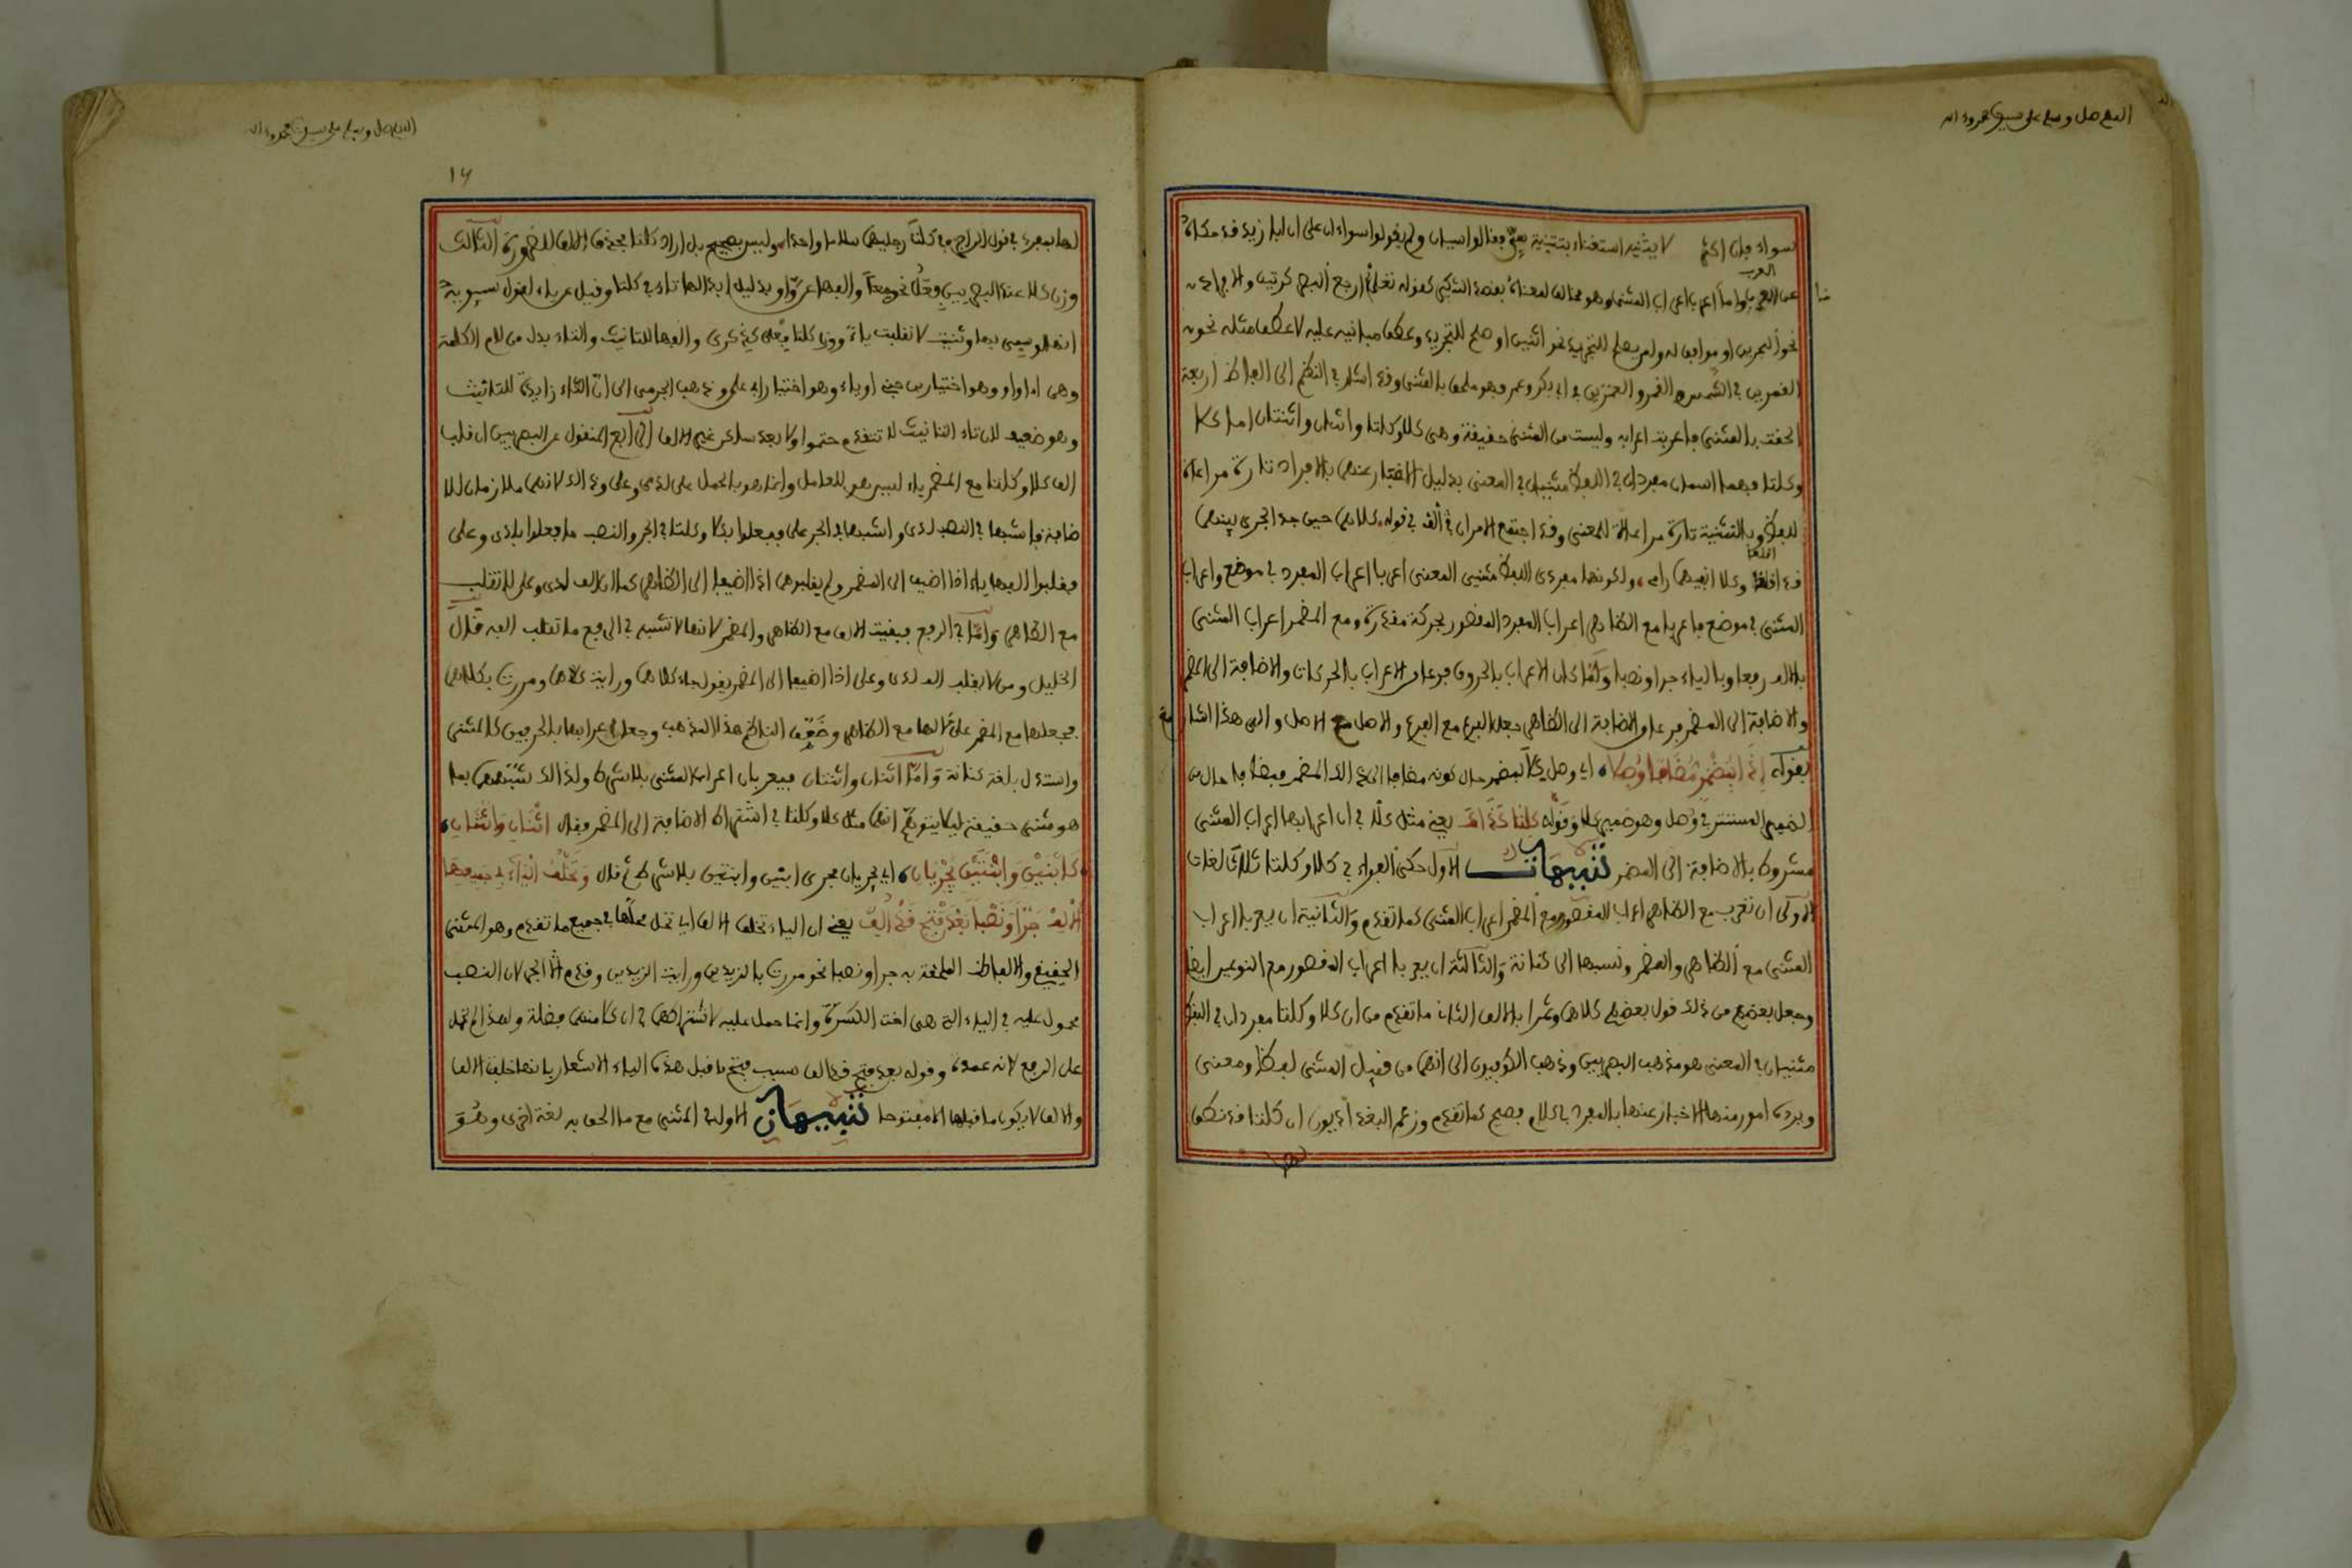 اللهم صل وسلم على سيدنا محمد وءاله
سواء فإن اكثرهم لا يثنيه استغناء بتثنية سي فقالوا سيان ولم يقولوا سواءان على ان ابا زيد قد حكاه
عن العرب واما اعرب اعراب المثنى وهو مخالف لمعناه بقصد التكثير كقوله تعالى ارجع البصر كرتين
نحو البحرين او موافق له ولم يصلح للتجريد نحو اثنين او صلح للتجريد وعطف مباينه عليه لا عطف مثله نحو
القمرين في الشمس والقمر والعمرين في ابي بكر وعمر فهو ملحق بالمثنى وقد اشار في النظم الى الفاظ اربعة
الحقت بالمثنى في اعرابه وليست من المثنى حقيقة وهي كلا وكلتا واثنان واثنتان اما كلا
وكلتا فهما اسمان مفردان في اللفظ مثنيان في المعنى بدليل الاخبار عنهما بالافراد تارة مراعاة
للفظ وبالتثنية تارة مراعاة للمعنى وقد اجتمع الامران في قوله كلاهما حين جد الجري بينهما
قد اقلعا وكلا انفيهما رابي ولكونهما مفردي اللفظ مثنيي المعنى اعربا اعراب المفرد في موضع واعراب
المثنى في موضع فاعربا مع الظاهر اعراب المفرد المقصور بحركة مقدرة ومع المضمر اعراب المثنى
بالالف رفعا وبالياء جرا ونصبا ولما كان الاعراب بالحروف فرعا من الاعراب بالحركات والاضافة الى المضمر
والاضافة الى المضمر فرع والاضافة الى الظاهر جعل الفرع مع الفرع والاصل مع الاصل والى هذا اشار
بقوله إذا بمضمر مضافا وصلا اي وصل كلا بمضمر حال كونه مضافا الى ذالك المضمر فمضافا حال من
الضمير المستتر في وصل وهو ضمير كلا وقوله كلتا كذاك يعني مثل كلا في ان اعرابها اعراب المثنى
مشروط بالاضافة الى المضمر تنبيهات الاول حكى الفراء في كلا وكلتا ثلاث لغات
الاولى ان تعرب مع الظاهر اعراب المقصور ومع المضمر اعراب المثنى كما تقدم والثانية ان يعربا اعراب
المثنى مع الظاهر والمضمر ونسبها الى كنانة والثالثة ان يعربا اعراب المقصور مع النوعين ايضا
وجعل بعضهم من ذلك قول بعضهم كلاهما وتمرا بالالف الثاني ما تقدم من ان كلا وكلتا مفردان في اللفظ
مثنيان في المعنى هو مذهب البصريين وذهب الكوفيون الى انهما من قبيل المثنى لفظا ومعنى
ويرده امور منها الاخبار عنهما بالمفرد في كلام فصيح كما تقدم وزعم البغداديون ان كلتا قد نطق
لها
اللهم صل وسلم على سيدنا محمد وءاله
١٦
لها بمفرد في قول الراجز في كلت رجليها سلامى واحده وليس بصحيح بل اراد كلتا بحذف الالف للضرورة الثالث
وزن كلا عند البصريين فعل نحو معا والفها عن واو بدليل ابدالها تاء في كلتا وقيل عن ياء لقول سيبويه
انه لو سمي بها وثنيت لانقلبت ياء ووزن كلتا فعلى كذكرى والفها للتانيث والتاء بدل من لام الكلمة
وهي اما واو وهو اختيار ابن جني او ياء وهو اختيار ابي علي وذهب الجرمي الى ان التاء زايدة للتانيث
وهو ضعيف لان تاء التانيث لا تتقدم حشوا ولا بعد ساكن غير الالف الرابع المنقول عن البصريين ان قلب
الف كلا وكلتا مع المضمر ياء ليس هو للعامل وانما هو بالحمل على لدى وعلى وذالك لانهما ملازمان للا
ضافة فاشبها في النصب لدى واشبها في الجر على ففعلوا بكلا وكلتا في الجر والنصب ما فعلوا بلدى وعلى
فقلبوا الفهما ياء اذا اضيفا الى المضمر ولم يقلبوها اذا اضيفا الى الظاهر كما ان الف لدى وعلى لا تقلب
مع الظاهر واما في الرفع فبقيت الالف مع الظاهر والمضمر لانها لا تشبه في الرفع ما تقلب الفه قال
الخليل ومن لا يقلب الف لدى وعلى اذا اضيفا الى المضمر يقول جاء كلاهما ورايت كلاهما ومررت بكلاهما
فيجعلها مع المضمر على حالها مع الظاهر وضعف الناظم هذا المذهب وجعل اعرابها بالحرفين كالمثنى
واستدل بلغة كنانة واما اثنان واثنتان فيعربان اعراب المثنى بلا شرط ولذالك شبههما بما
هو مثنى حقيقة ليلا يتوهم انهما مثل كلا وكلتا في اشتراط الاضافة الى المضمر فقال اثنان واثنتان
كابنين وابنتين يجريان اي يجريان مجرى ابنين وابنتين بلا شرط ثم قال وتخلف اليا في جميعها
الالف جرا ونصبا بعد فتح قد ألف يعني ان الياء تخلف الالف اي تحل محلها في جميع ما تقدم وهو المثنى
الحقيقي والالفاظ الملحقة به جرا ونصبا نحو مررت بالزيدين ورايت الزيدين وقدم الجر لان النصب
محمول عليه في الياء التي هي اخت الكسرة وانما حمل عليه لاشتراكهما في ان كلا منهما فضلة ولهذا لم تحمل
على الرفع لانه عمدة وقوله بعد فتح قد الف سبب فتح ما قبل هذه الياء الاشعار بانها خلفت الالف
والالف لا يكون ما قبلها الا مفتوحا تنبيهان الاول في المثنى مع ما الحق به لغة اخرى وهو